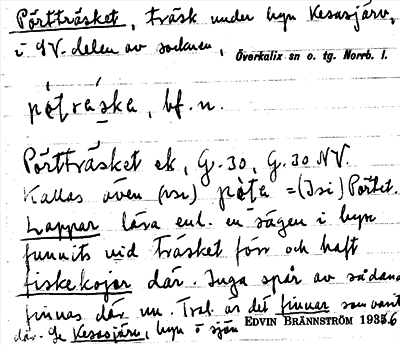 Pörtträsket, träsk under byn Kesasjärv,
i NV. delen av socknen, Överkalix sn o. tg. Norrb. l.
pö̀träska, bf. n.
Pörtträsket ek, G. 30, G. 30 NV.
Kallas även (vsc) pö̀ta = (Isi) Pörtet.
Lappar lära enl. en sägen i byn
funnits vid träsket förr och haft
fiskekojor där. Inga spår av sådana
finnas där nu. Trol. är det finnar som varit
där. Se Kesasjärv, byn o sjön EDVIN BRÄNNSTRÖM 1936